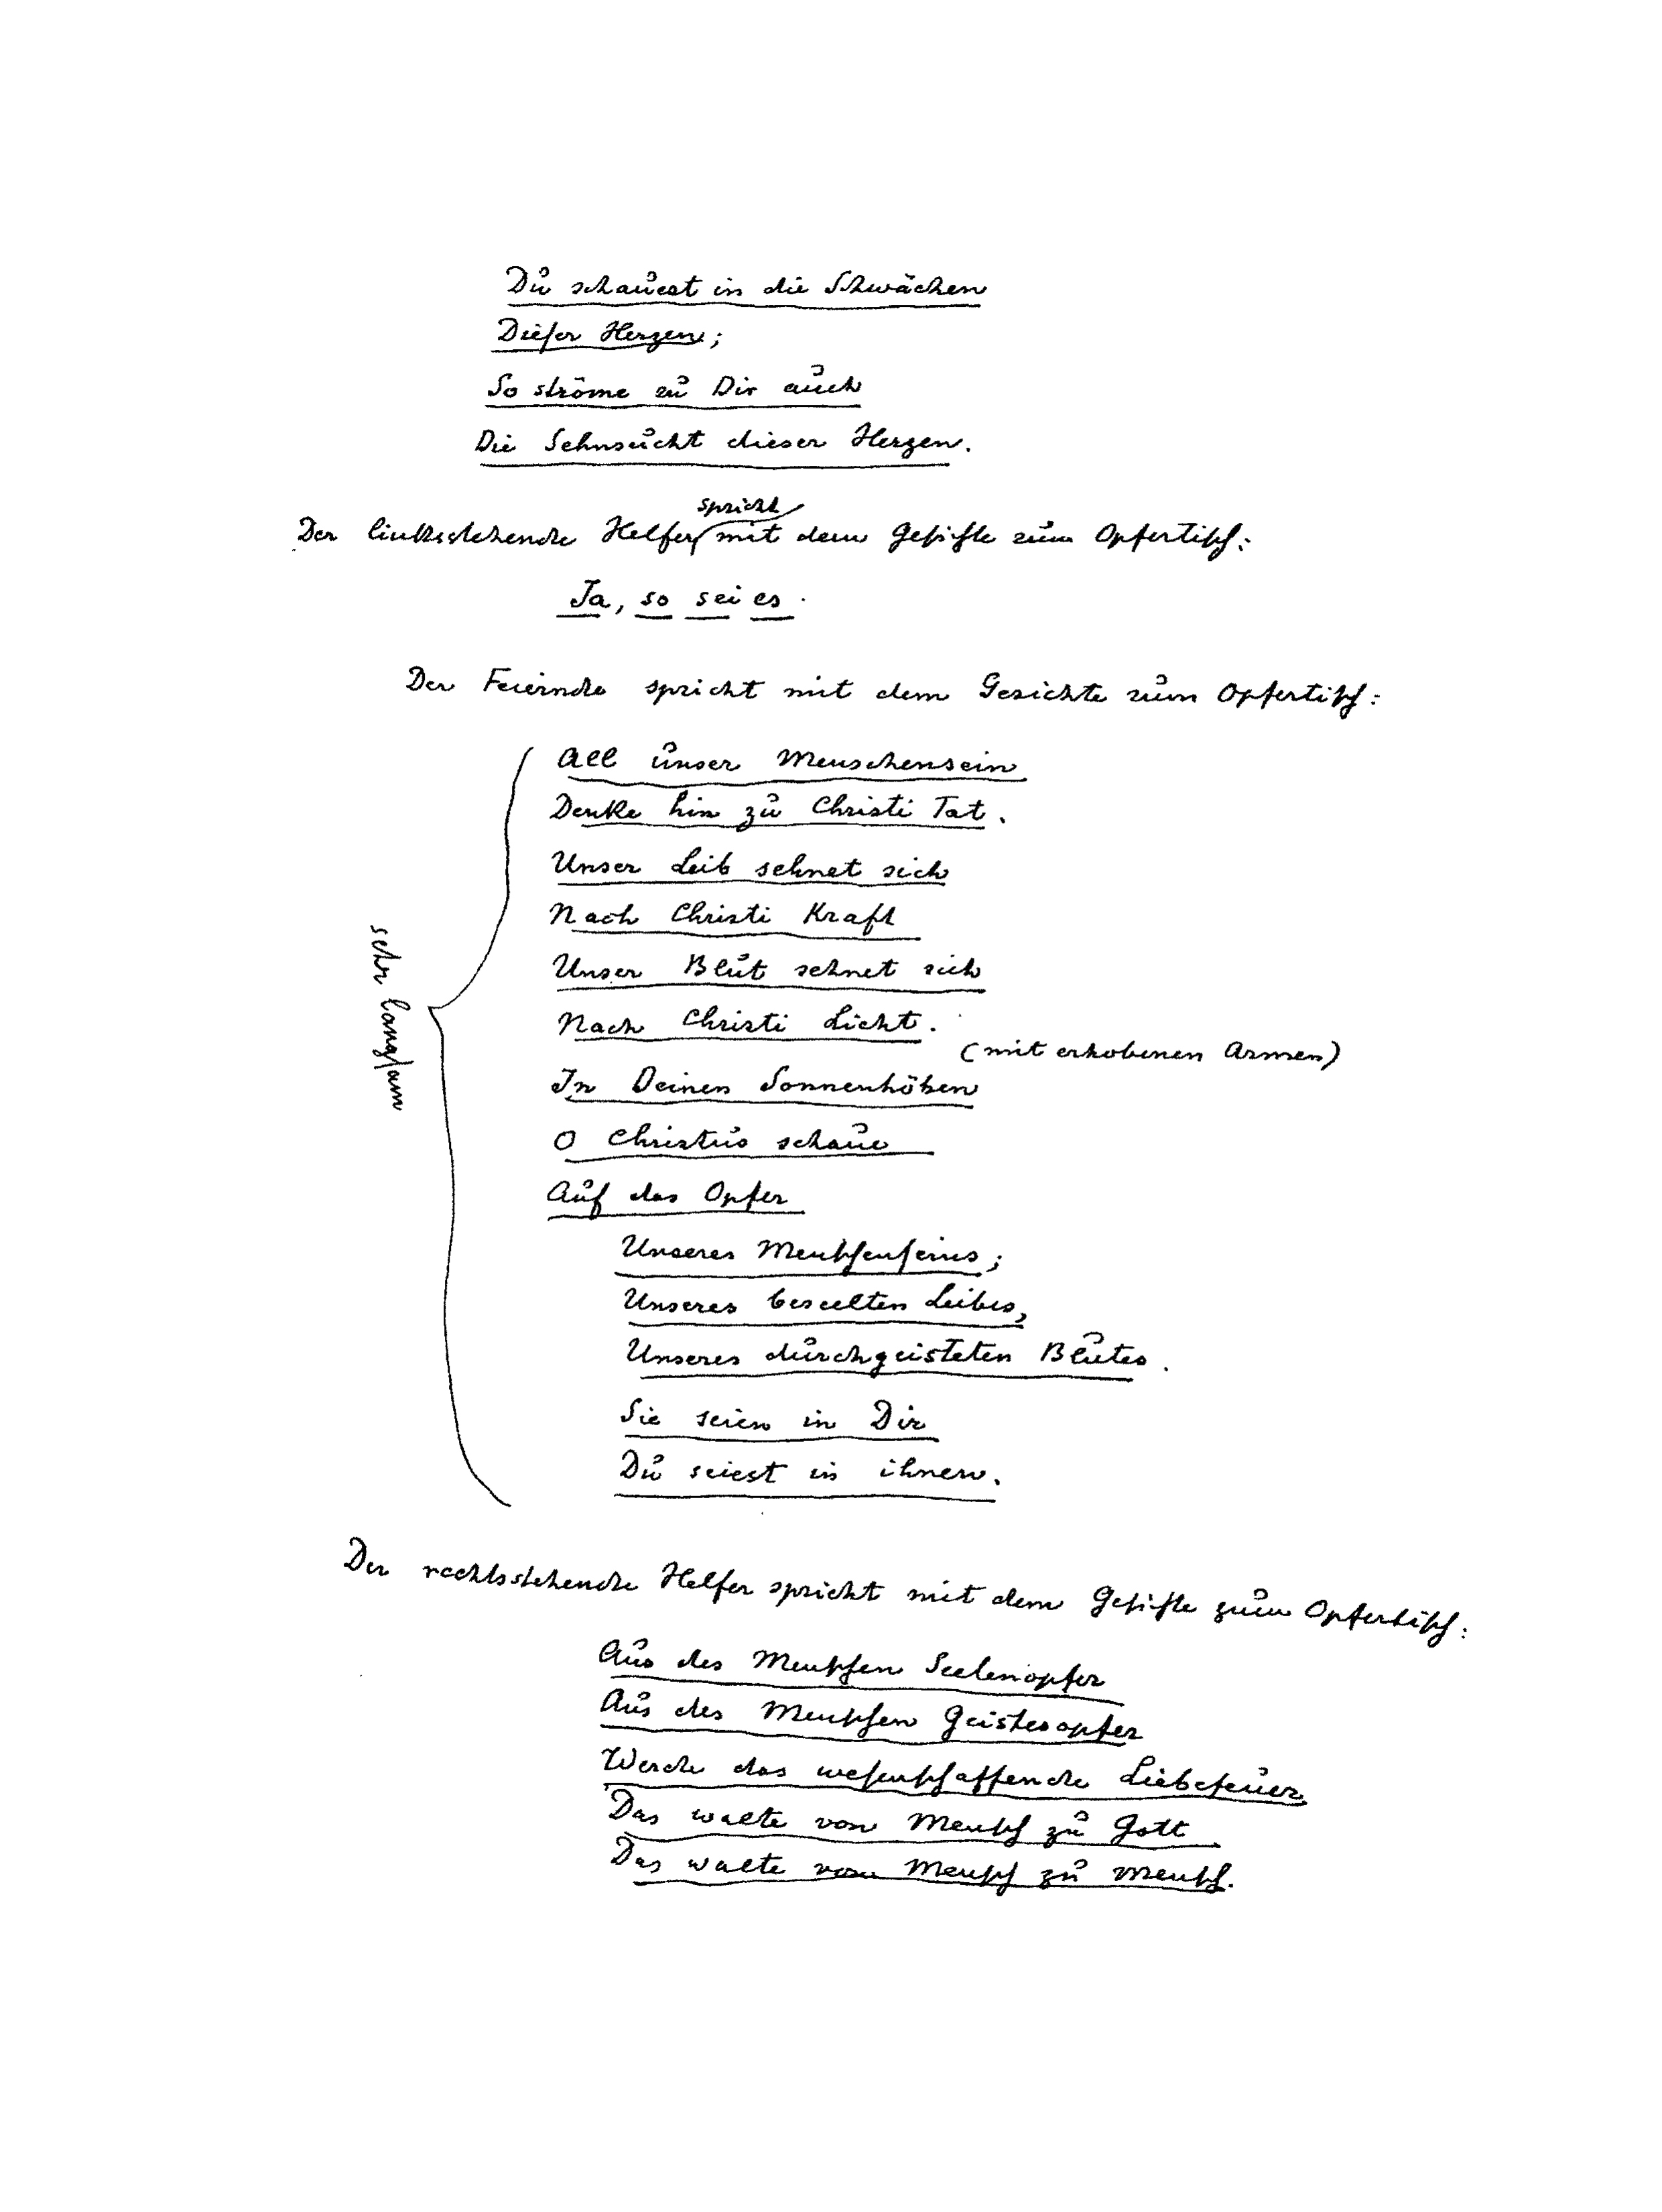 Du schauest in die Schwächen
Dieser Herzen;
So ströme zu Dir auch
Die Sehnsucht dieser Herzen.
spricht
Der linksstehende Helfer mit dem Gesichte zum Opfertisch:
Ja, so sei es.
Der Feiernde spricht mit dem Gesichte zum Opfertisch:
All unser Menschensein
Denke hin zu Christi Tat.
Unser Leib sehnet sich
Nach Christi Kraft
Unser Blut sehnet sich
Nach Christi Licht.
(mit erhobenen Armen)
In Deinen Sonnenhöhen
O Christus schaue
Auf das Opfer
Unseres Menschenseins;
Unseres beseelten Leibes,
Unseres durchgeisteten Blutes.
Sie seien in Dir
Du seiest in ihnen.
sehr langsam
Der rechtsstehende Helfer spricht mit dem Gesichte zum Opfertisch:
Aus des Menschen Seelenopfer
Aus des Menschen Geistesopfer
Werde das wesenschaffende Liebefeuer
Das walte von Mensch zu Gott
Das walte von Mensch zu Mensch.